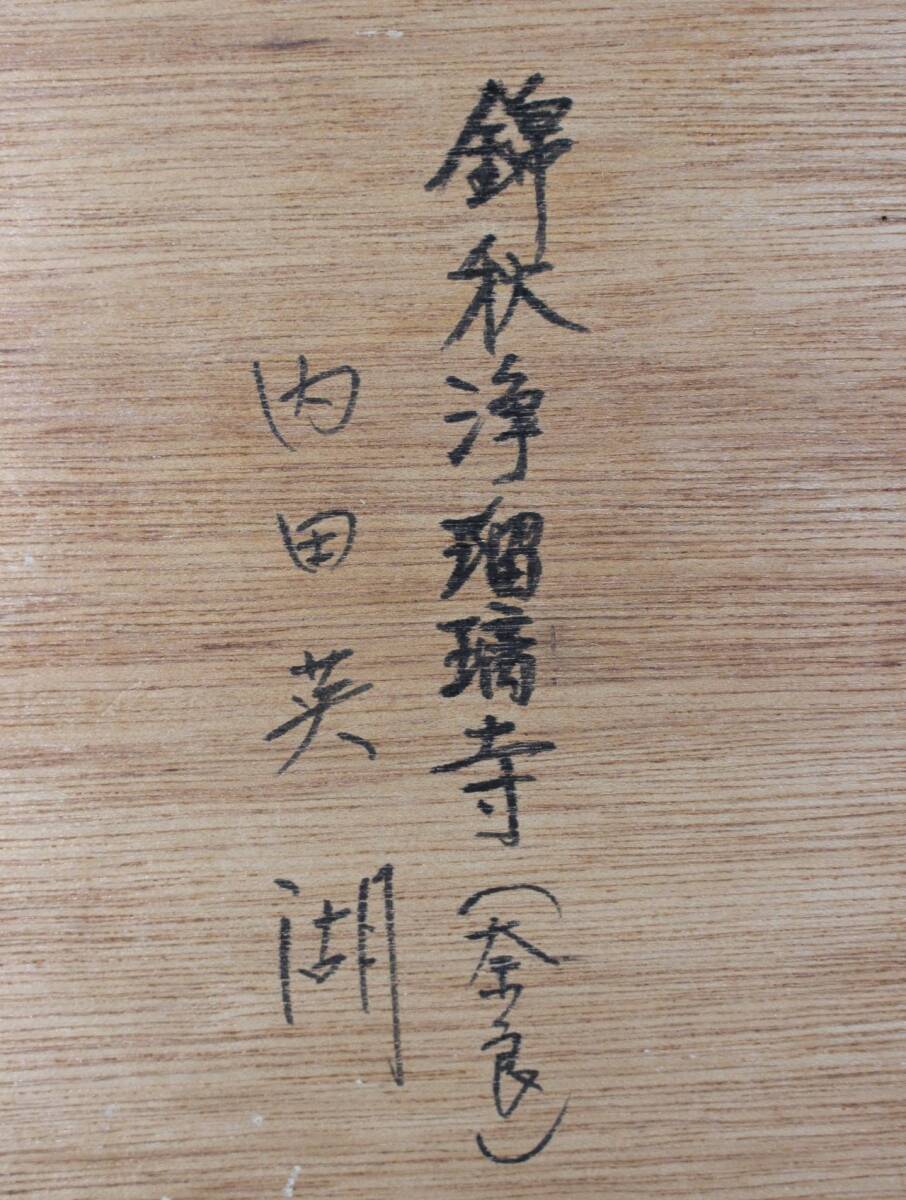 錦秋浄瑠璃寺(奈良)
内田英湖